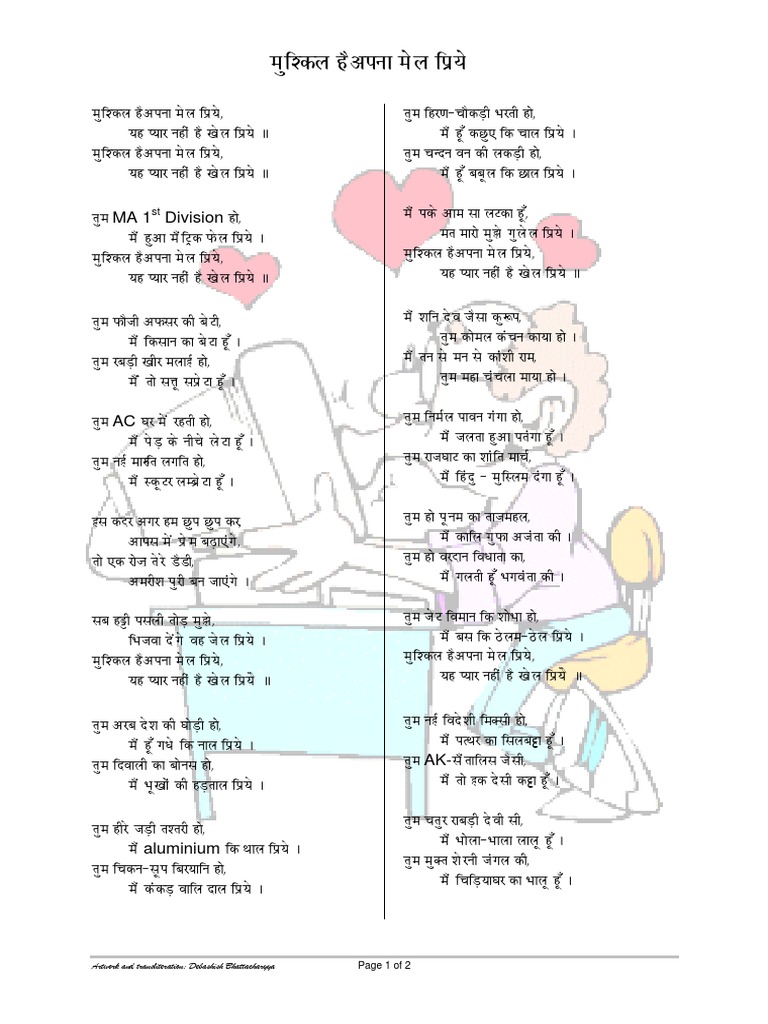 मुश्किल हैअपना मेल प्रिये
मुश्किल हैअपना मेल प्रिये,
यह प्यार नहीं है खेल प्रिये ॥
मुश्किल हैअपना मेल प्रिये,
यह प्यार नहीं है खेल प्रिये ॥
तुम MA 1st Division हो,
मैं हुआ मैट्रिक फेल प्रिये ।
मुश्किल हैअपना मेल प्रिये,
यह प्यार नहीं है खेल प्रिये ॥
तुम फौजी अफसर की बेटी,
मैं किसान का बेटा हूँ ।
तुम रबड़ी खीर मलाई हो,
मैं तो सत्तू सप्रेटा हूँ ।
तुम AC घर में रहती हो,
मैं पेड़ के नीचे लेटा हूँ ।
तुम नई मारुति लगति हो,
मैं स्कूटर लम्ब्रेटा हूँ ।
इस कदर अगर हम छुप छुप कर,
आपस में प्रेम बढ़ाएंगे,
तो एक रोज तेरे डैडी,
अमरीश पुरी बन जाएंगे ।
सब हड्डी पसली तोड़ मुझे,
भिजवा देंगे वह जेल प्रिये ।
मुश्किल हैअपना मेल प्रिये,
यह प्यार नहीं है खेल प्रिये ॥
तुम अरब देश की घोड़ी हो,
मैं हूँ गधे कि नाल प्रिये ।
तुम दिवाली का बोनस हो,
मैं भूखों की हड़ताल प्रिये ।
तुम हीरे जड़ी तश्तरी हो,
मैं aluminium कि थाल प्रिये ।
तुम चिकन-सूप बिरयानि हो,
मैं कंकड़ वालि दाल प्रिये ।
तुम हिरण-चौकड़ी भरती हो,
मैं हूँ कछुए कि चाल प्रिये ।
तुम चन्दन वन की लकड़ी हो,
मैं हूँ बबूल कि छाल प्रिये ।
मैं पके आम सा लटका हूँ,
मत मारो मुझे गुलेल प्रिये ।
मुश्किल हैअपना मेल प्रिये,
यह प्यार नहीं है खेल प्रिये ॥
मैं शनि देव जैसा कुरूप,
तुम कोमल कंचन काया हो ।
मैं तन से मन से कांशी राम,
तुम महा चंचला माया हो ।
तुम निर्मल पावन गंगा हो,
मैं जलता हुआ पतंगा हूँ ।
तुम राजघाट का शांति मार्च,
मैं हिंदु - मुस्लिम दंगा हूँ ।
तुम हो पूनम का ताजमहल,
मैं कालि गुफा अजंता की ।
तुम हो वरदान विधाता का,
मैं गलती हूँ भगवंता की ।
तुम जेट विमान कि शोभा हो,
मैं बस कि ठेलम-ठेल प्रिये ।
मुश्किल हैअपना मेल प्रिये,
यह प्यार नहीं है खेल प्रिये ॥
तुम नई विदेशी मिक्सी हो,
मैं पत्थर का सिलबट्टा हूँ ।
तुम AK-सैंतालिस जैसी,
मैं तो इक देसी कट्टा हूँ ।
तुम चतुर राबड़ी देवी सी,
मैं भोला-भाला लालू हूँ ।
तुम मुक्त शेरनी जंगल की,
मैं चिड़ियाघर का भालू हूँ ।
Artwork and transliteration: Debashish Bhattacharyya
Page 1 of 2